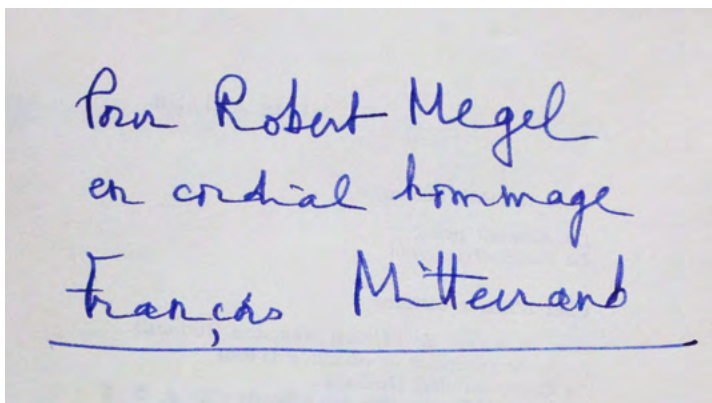 Pour Robert Megel
en cordial hommage
François Mitterrand